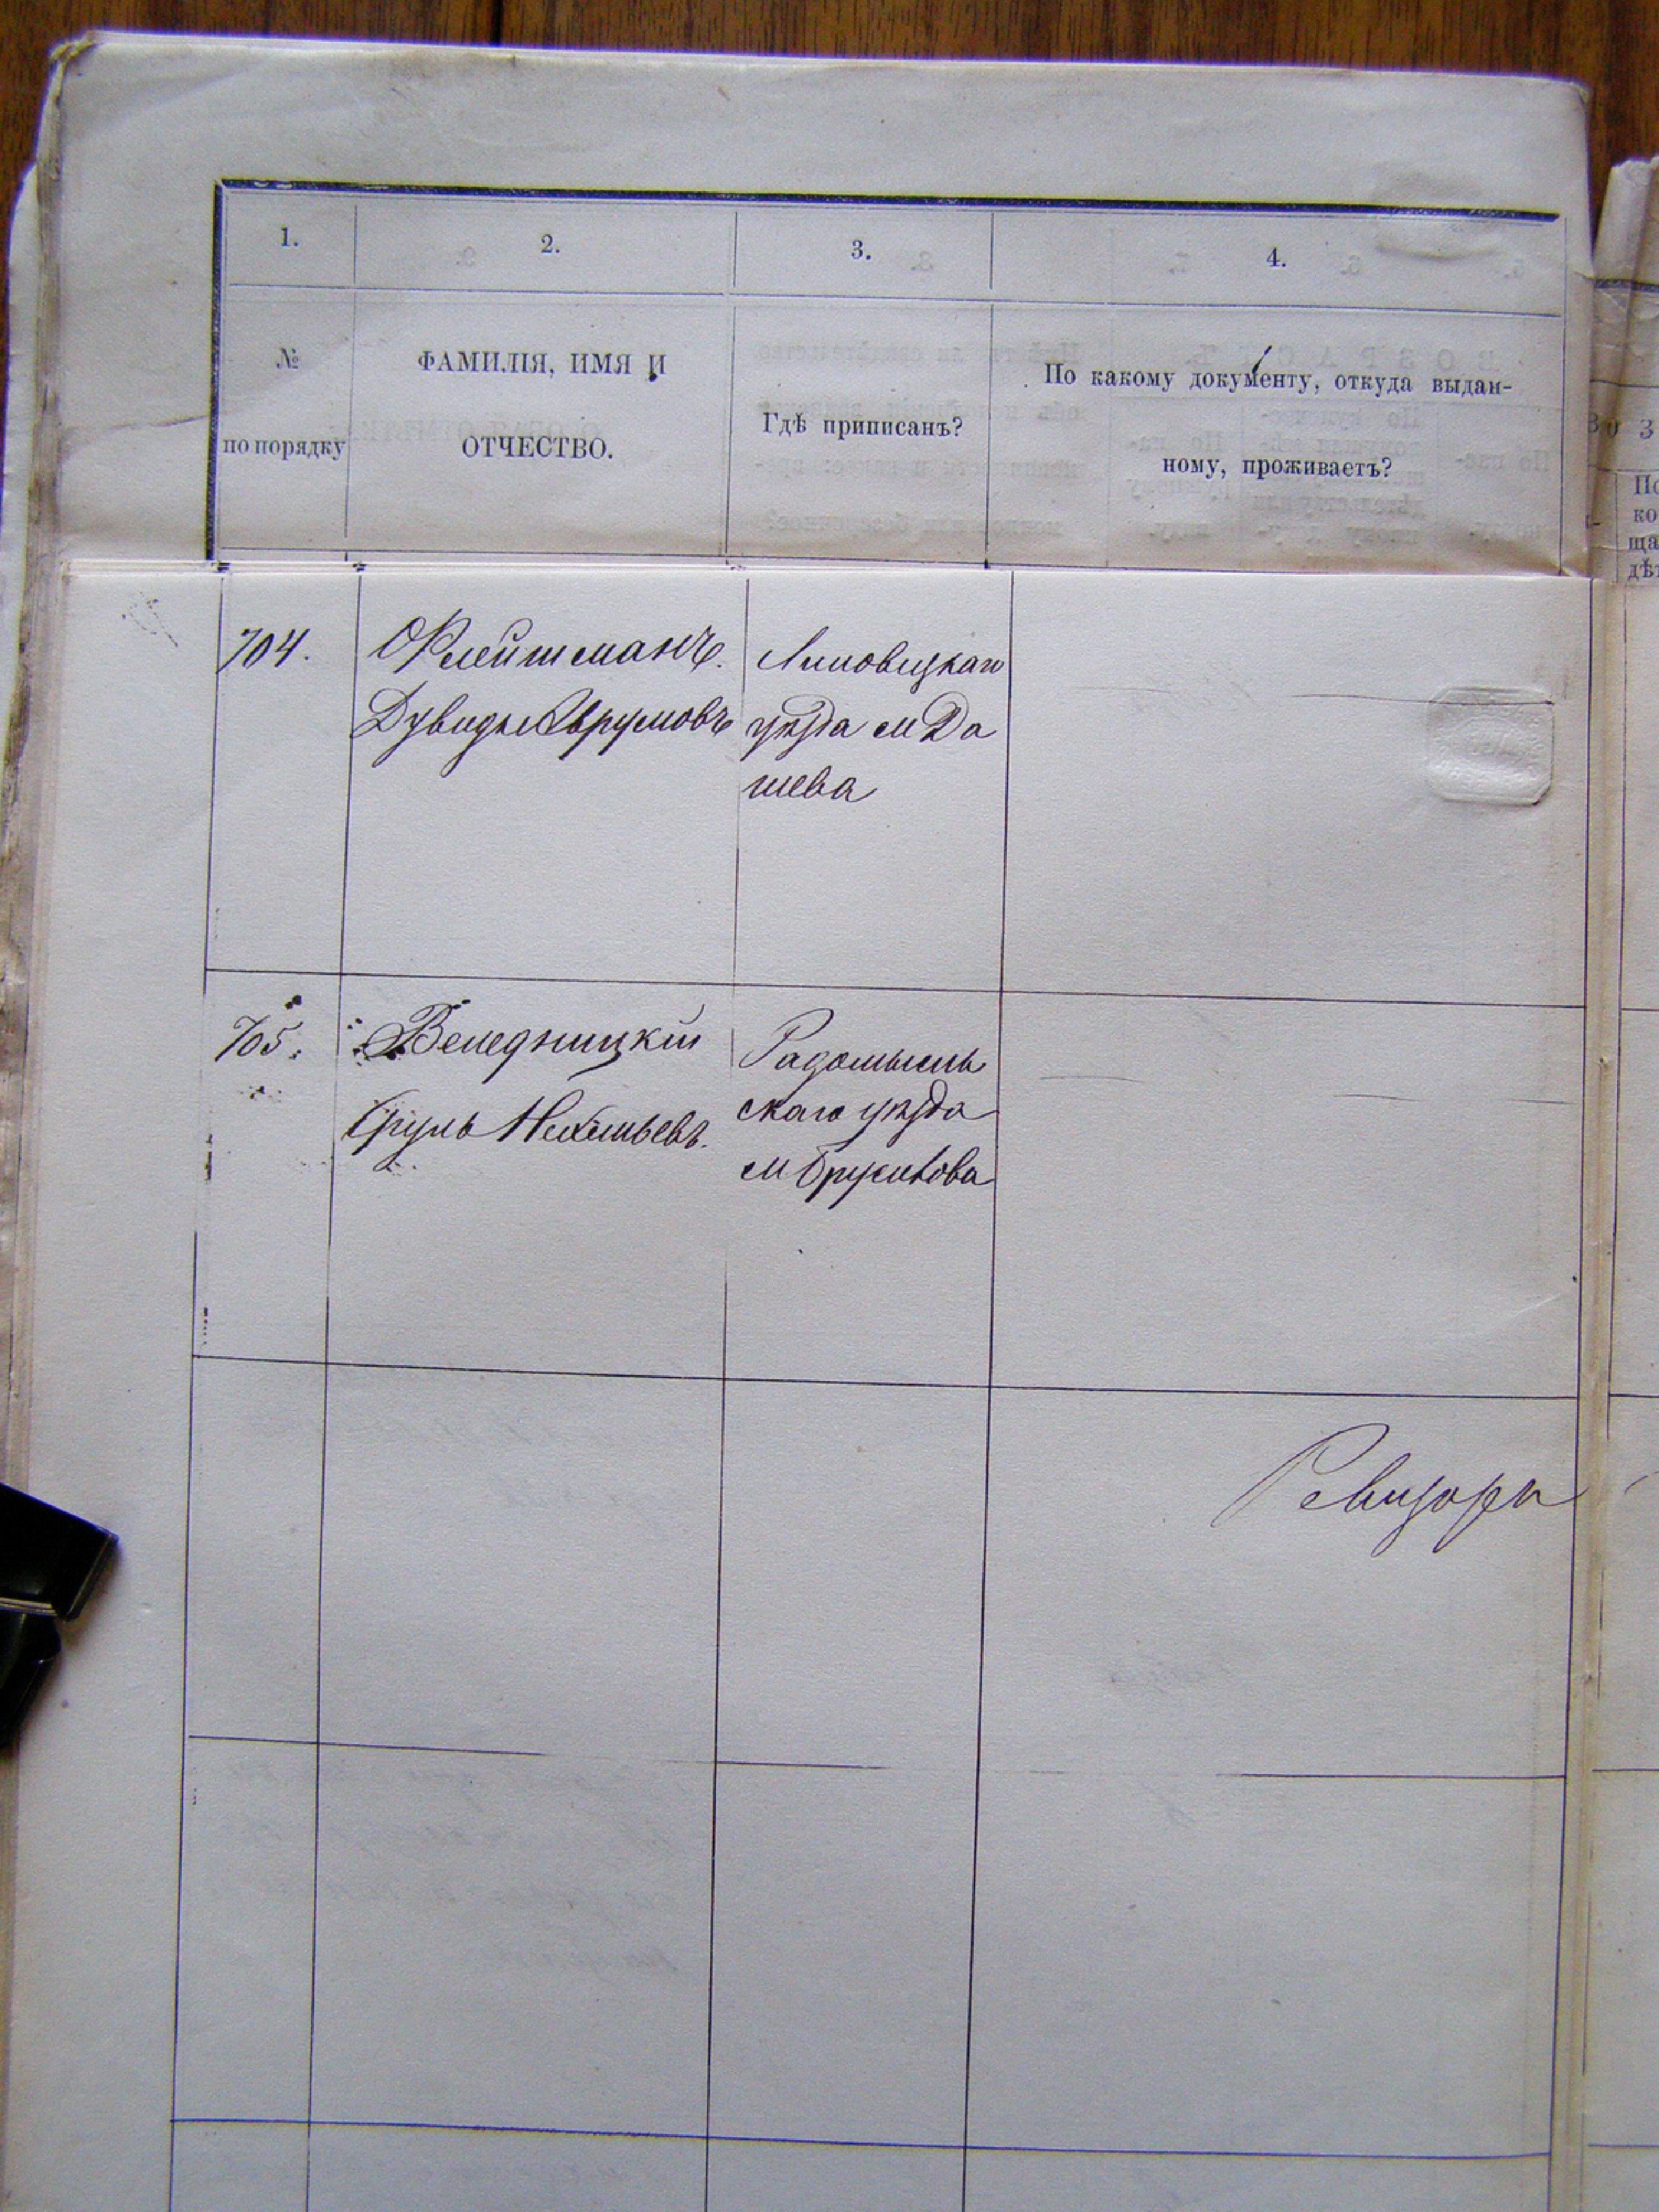 1. 2. 3. 4.
№
по порядку
ФАМИЛІЯ, ИМЯ И
ОТЧЕСТВО.
Гдѣ приписанъ?
По какому документу, откуда выдан-
ному, проживаетъ?
704.
Флейшманъ.
Дувидъ Аврумовъ
Липовецкаго
уѣзда м Да
шева
705.
Веледницкій
Сруль
Радомысль
скаго уѣзда
м Брусилова
Ревизоръ